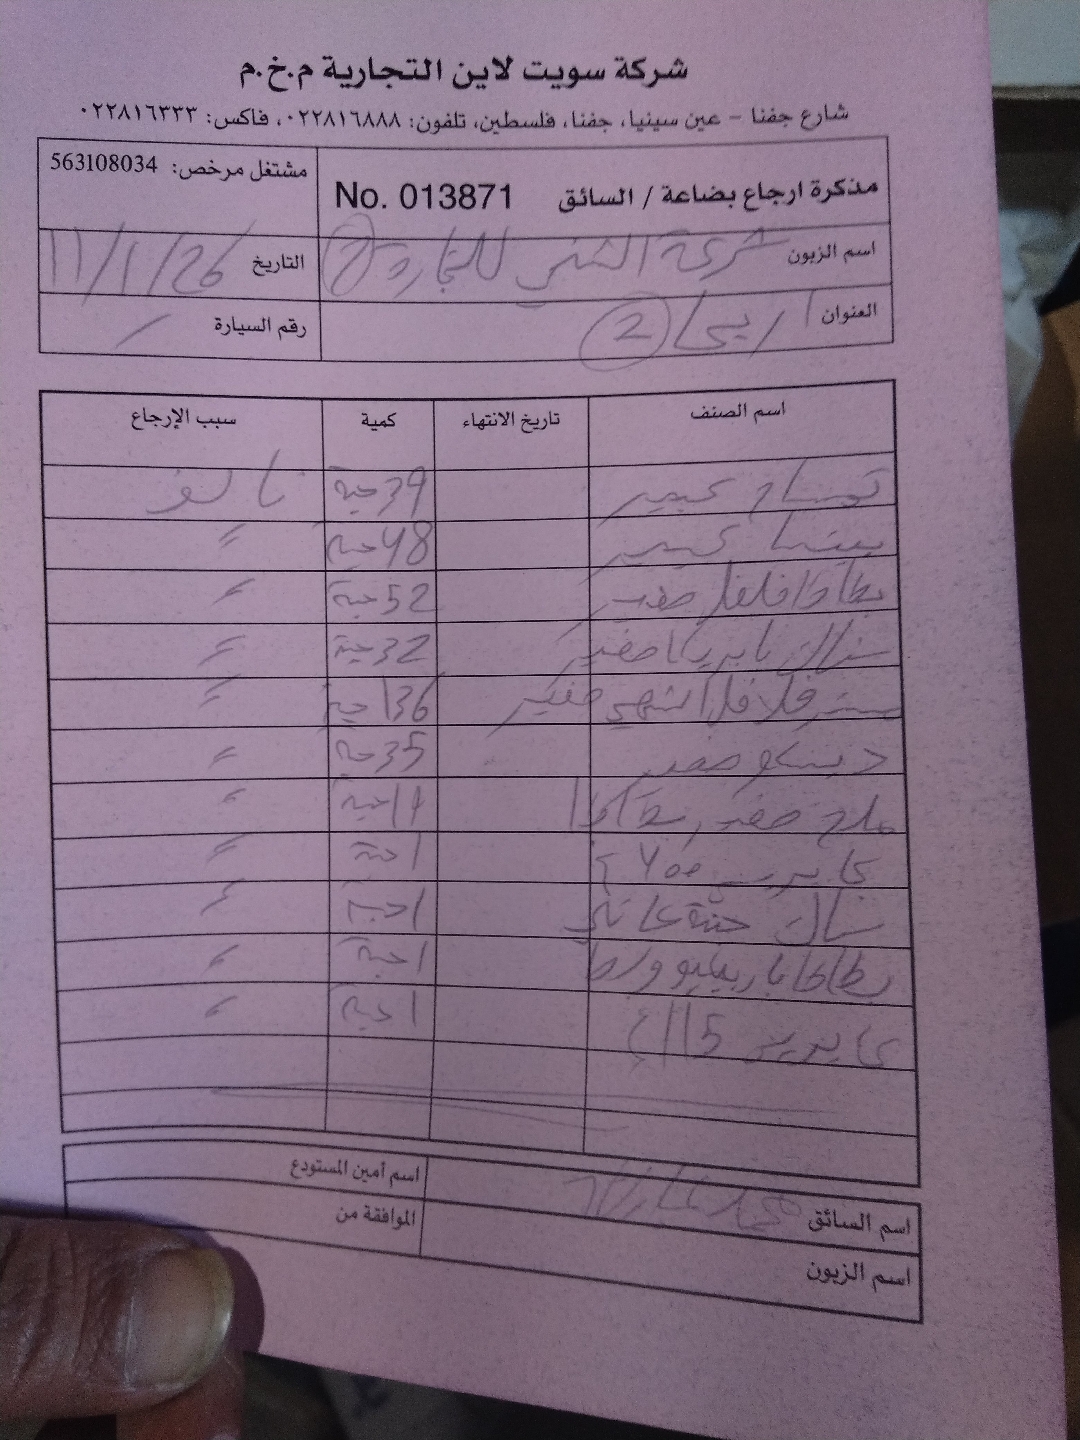 شركة سويت لاين التجارية م.خ.م
شارع جفنا - عين سينيا، جفنا، فلسطين، تلفون: ٠٢٢٨١٦٨٨٨، فاكس: ٠٢٢٨١٦٣٣٣
مذكرة ارجاع بضاعة / السائق No. 013871 مشتغل مرخص: 563108034
اسم الزبون شركة للتجارة التاريخ 11/1/26
العنوان اريحا 2 رقم السيارة /
اسم الصنف تاريخ الانتهاء كمية سبب الإرجاع
تمساح كبير 39 حبة تالف
كبير 48 حبة "
بطاطا فلفل صغير 52 حبة "
بابريكا صغير 32 حبة "
فلافل صغير 136 حبة "
ديسكو صغير 35 حبة "
ملح صغير بطاطا حبة "
1 حبة "
1 حبة "
بطاطا باربيكيو وسط 1 حبة "
115 غ 1 حبة "
اسم السائق محمد اسم أمين المستودع
اسم الزبون الموافقة من